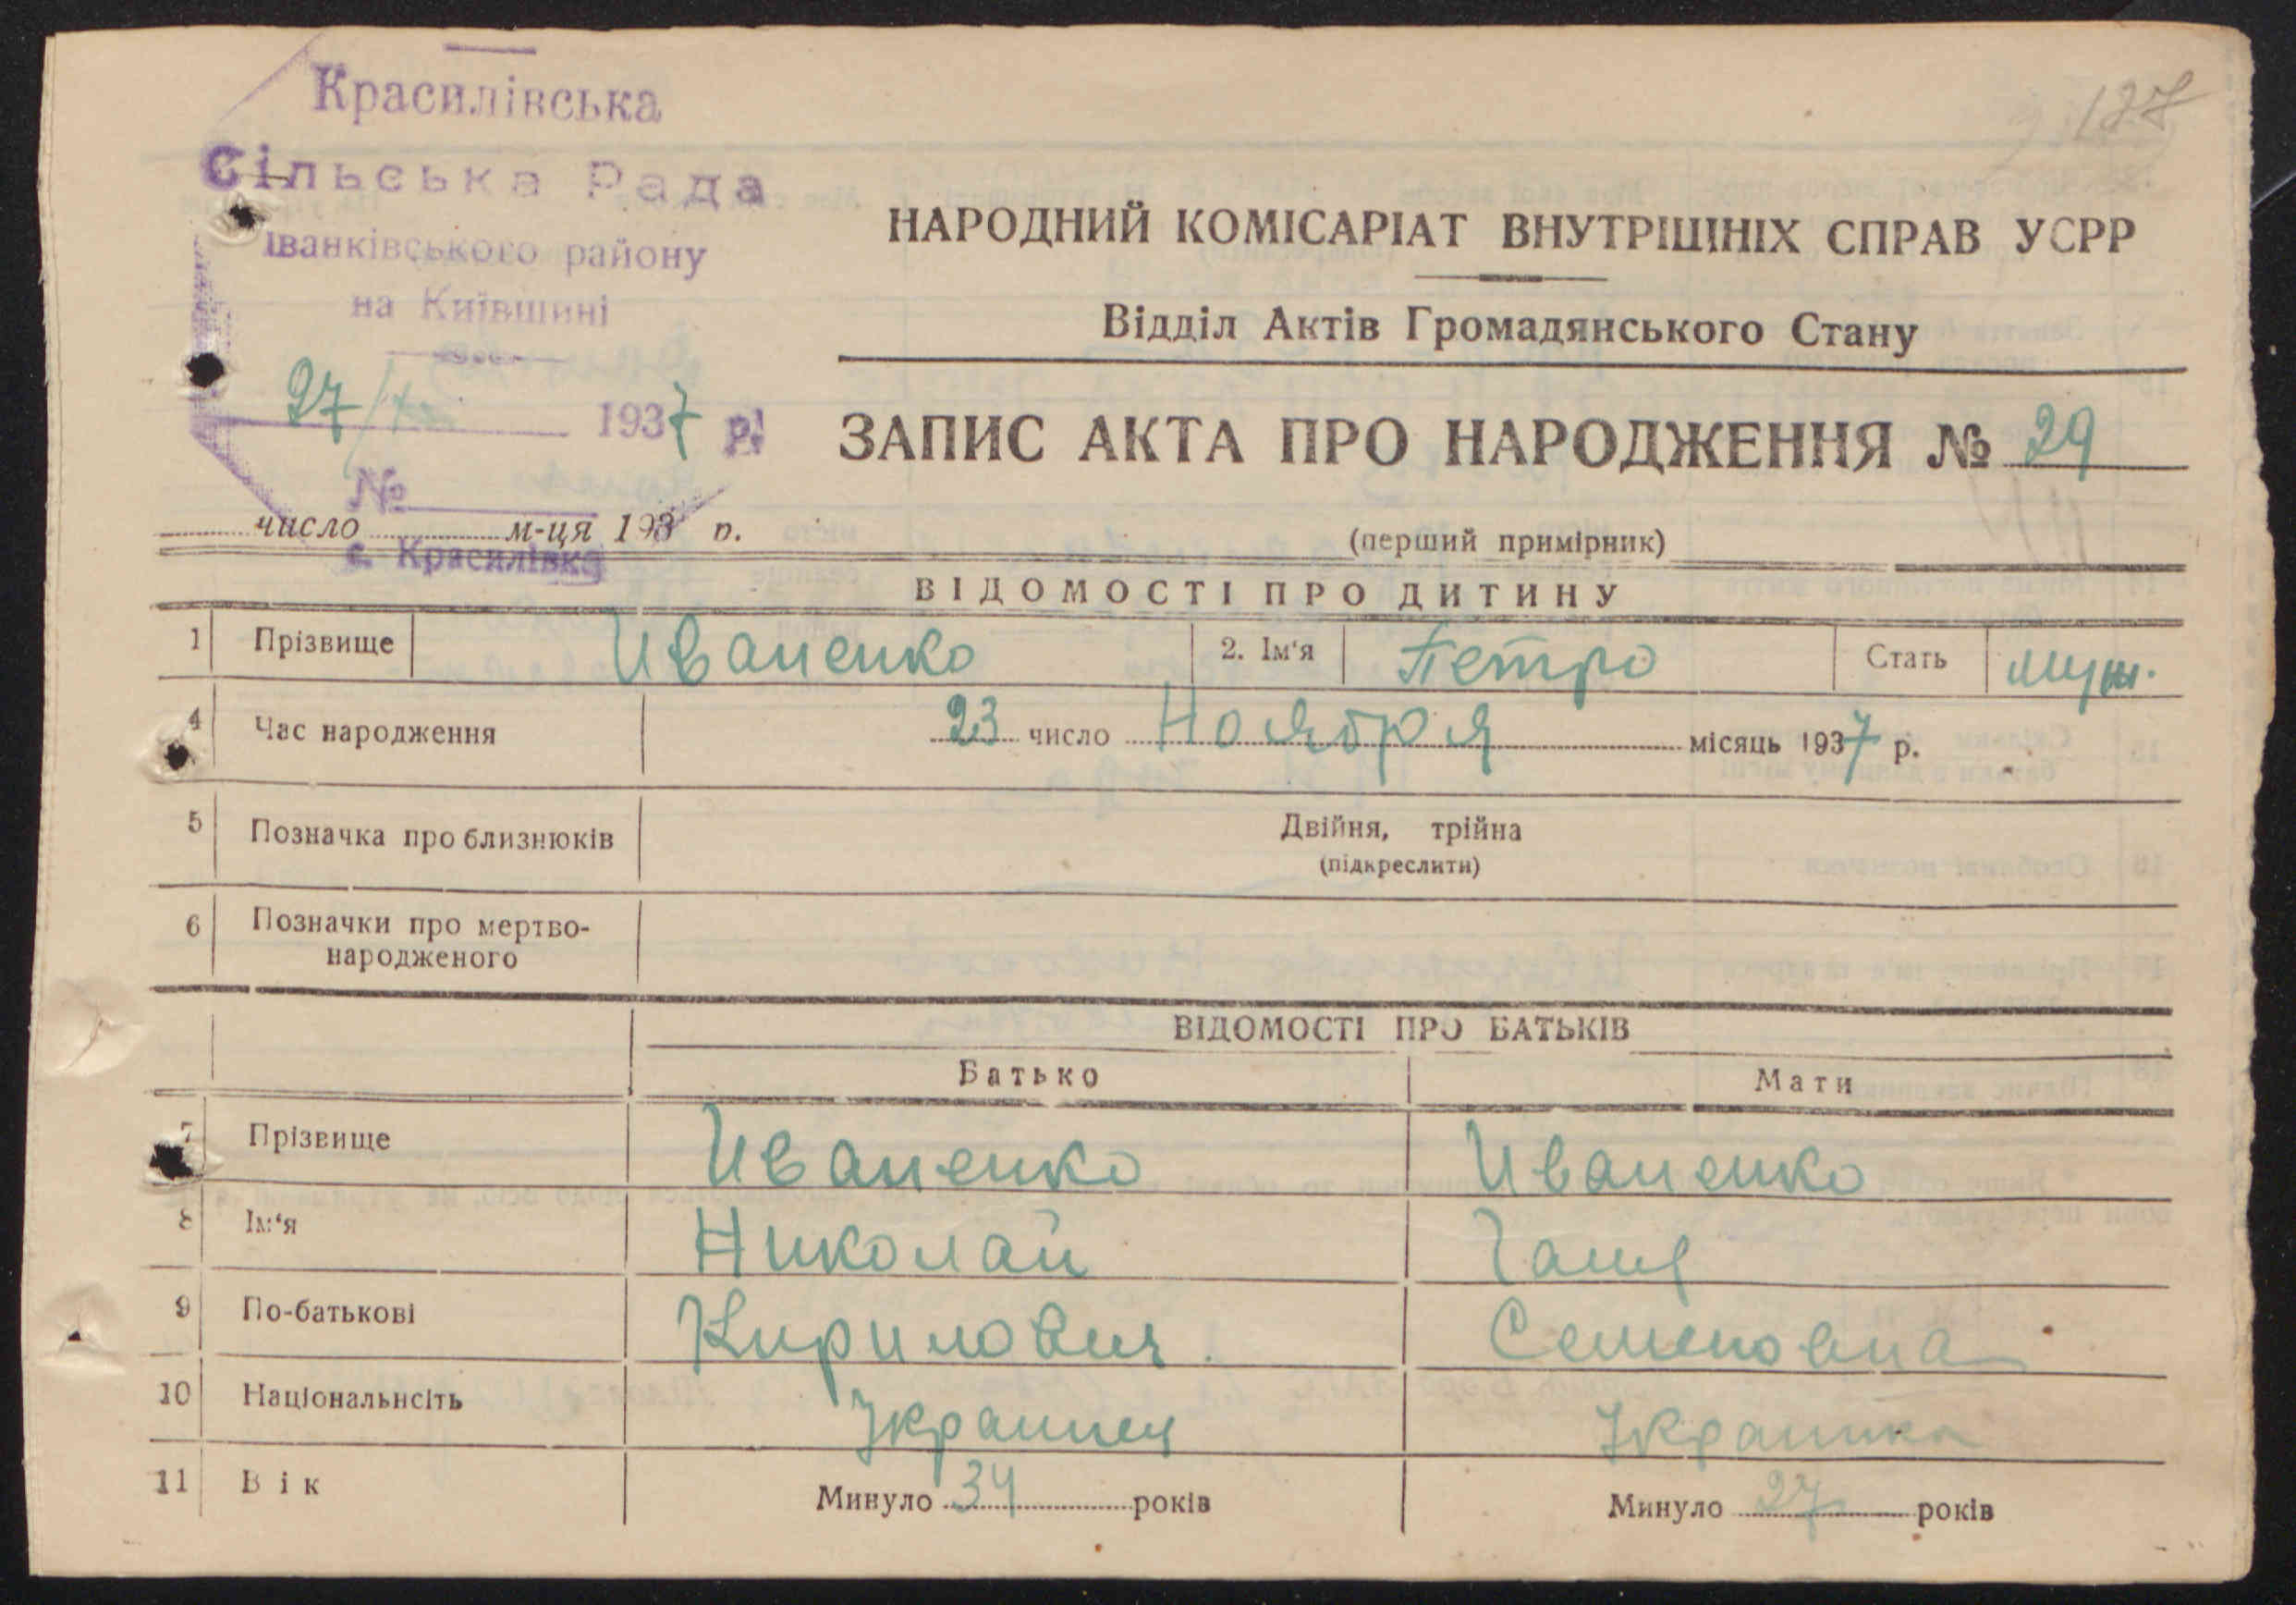 Красилівська
Сільська Рада
Іванківського району
на Київшині
27/XI 1937 р.
№
с. Красилівка
127
НАРОДНИЙ КОМІСАРІАТ ВНУТРІШНІХ СПРАВ УСРР
Відділ Актів Громадянського Стану
ЗАПИС АКТА ПРО НАРОДЖЕННЯ № 29
число м-ця 193 р.
(перший примірник)
ВІДОМОСТІ ПРО ДИТИНУ
1 Прізвище Иваненко 2. Ім'я Петро Стать муж.
4 Час народження 23 число Ноября місяць 1937 р.
5 Позначка про близнюків Двійня, трійна
(підкреслити)
6 Позначки про мертво-
народженого
ВІДОМОСТІ ПРО БАТЬКІВ
Батько Мати
7 Прізвище Иваненко Иваненко
8 Ім'я Николай Галя
9 По-батькові Кирилович Семеновна
10 Національнсіть Украинец Украинка
11 Вік Минуло 34 років Минуло 27 років